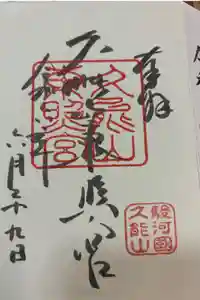 奉拝
久能山東照宮
令和二年
六月二十九日
久能山
東照宮
駿河國
久能山